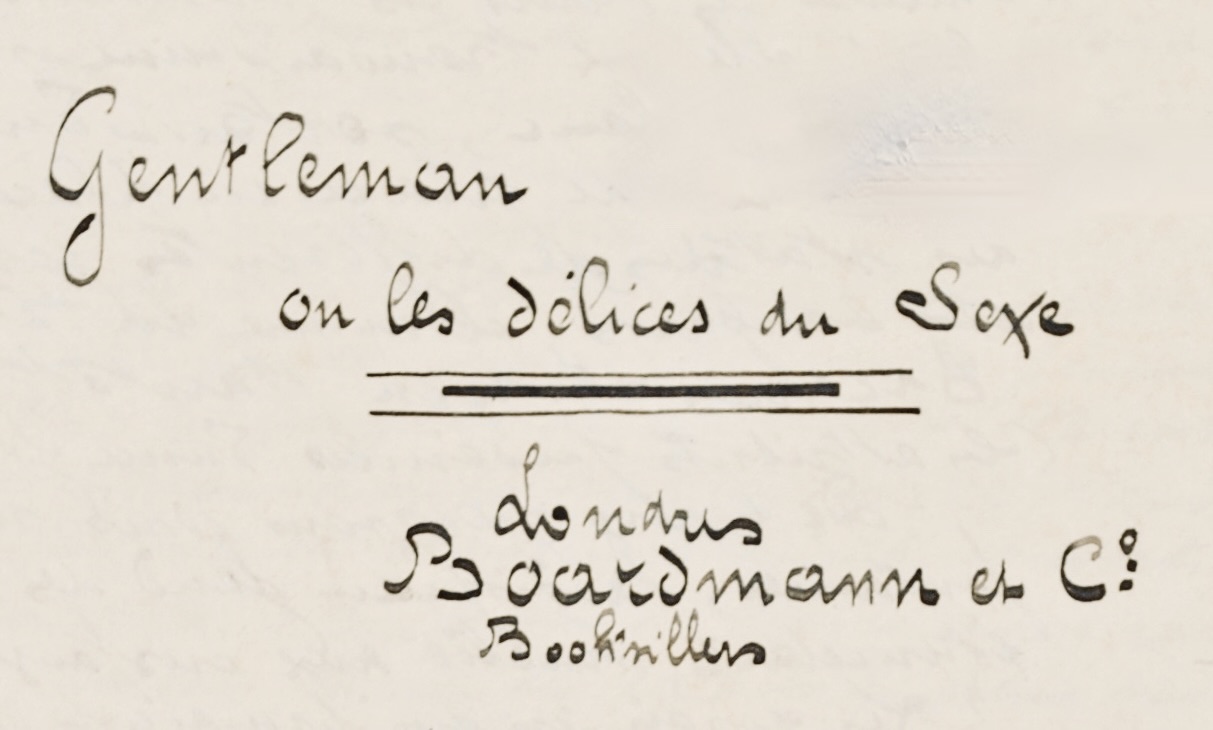 Gentleman
ou les délices du Sexe
Londres
Boardmann et Cº:
Booksillers